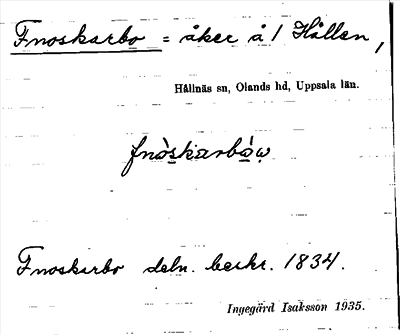 Fnoskarbo = åker å / Hållen,
Hållnäs sn, Olands hd, Uppsala län.
fnòskarbȧ̀w̤
Fnoskarbo deln. beskr. 1834.
Ingegärd Isaksson 1935.